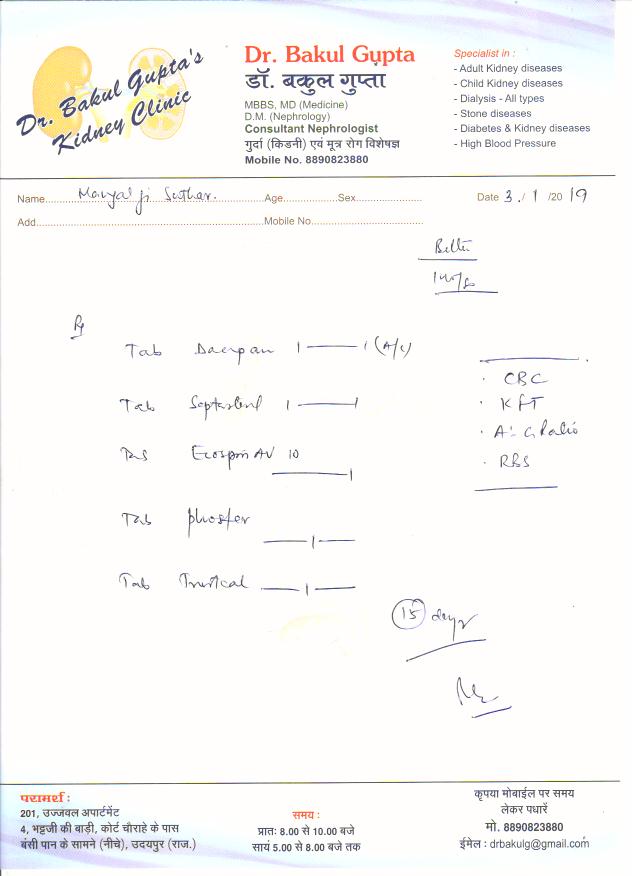 Dr. Bakul Gupta's
Kidney Clinic
Dr. Bakul Gupta
डॉ. बकुल गुप्ता
MBBS, MD (Medicine)
D.M. (Nephrology)
Consultant Nephrologist
गुर्दा (किडनी) एवं मूत्र रोग विशेषज्ञ
Mobile No. 8890823880
Specialist in :
- Adult Kidney diseases
- Child Kidney diseases
- Dialysis - All types
- Stone diseases
- Diabetes & Kidney diseases
- High Blood Pressure
Name Suthar. Age Sex Date 3/1/2019
Add Mobile No
Better
140/80
Rx
Tab 1 — 1 (A/C)
Tab 1 — 1
Ecosprin AV 10
— 1
Tab phosfer
— 1 —
Tab — 1 —
CBC
KFT
A:G Ratio
RBS
15 days
परामर्श :
201, उज्जवल अपार्टमेंट
4, भट्टजी की बाड़ी, कोर्ट चौराहे के पास
बंसी पान के सामने (नीचे), उदयपुर (राज.)
समय :
प्रातः 8.00 से 10.00 बजे
सायं 5.00 से 8.00 बजे तक
कृपया मोबाईल पर समय
लेकर पधारें
मो. 8890823880
ईमेल : drbakulg@gmail.com